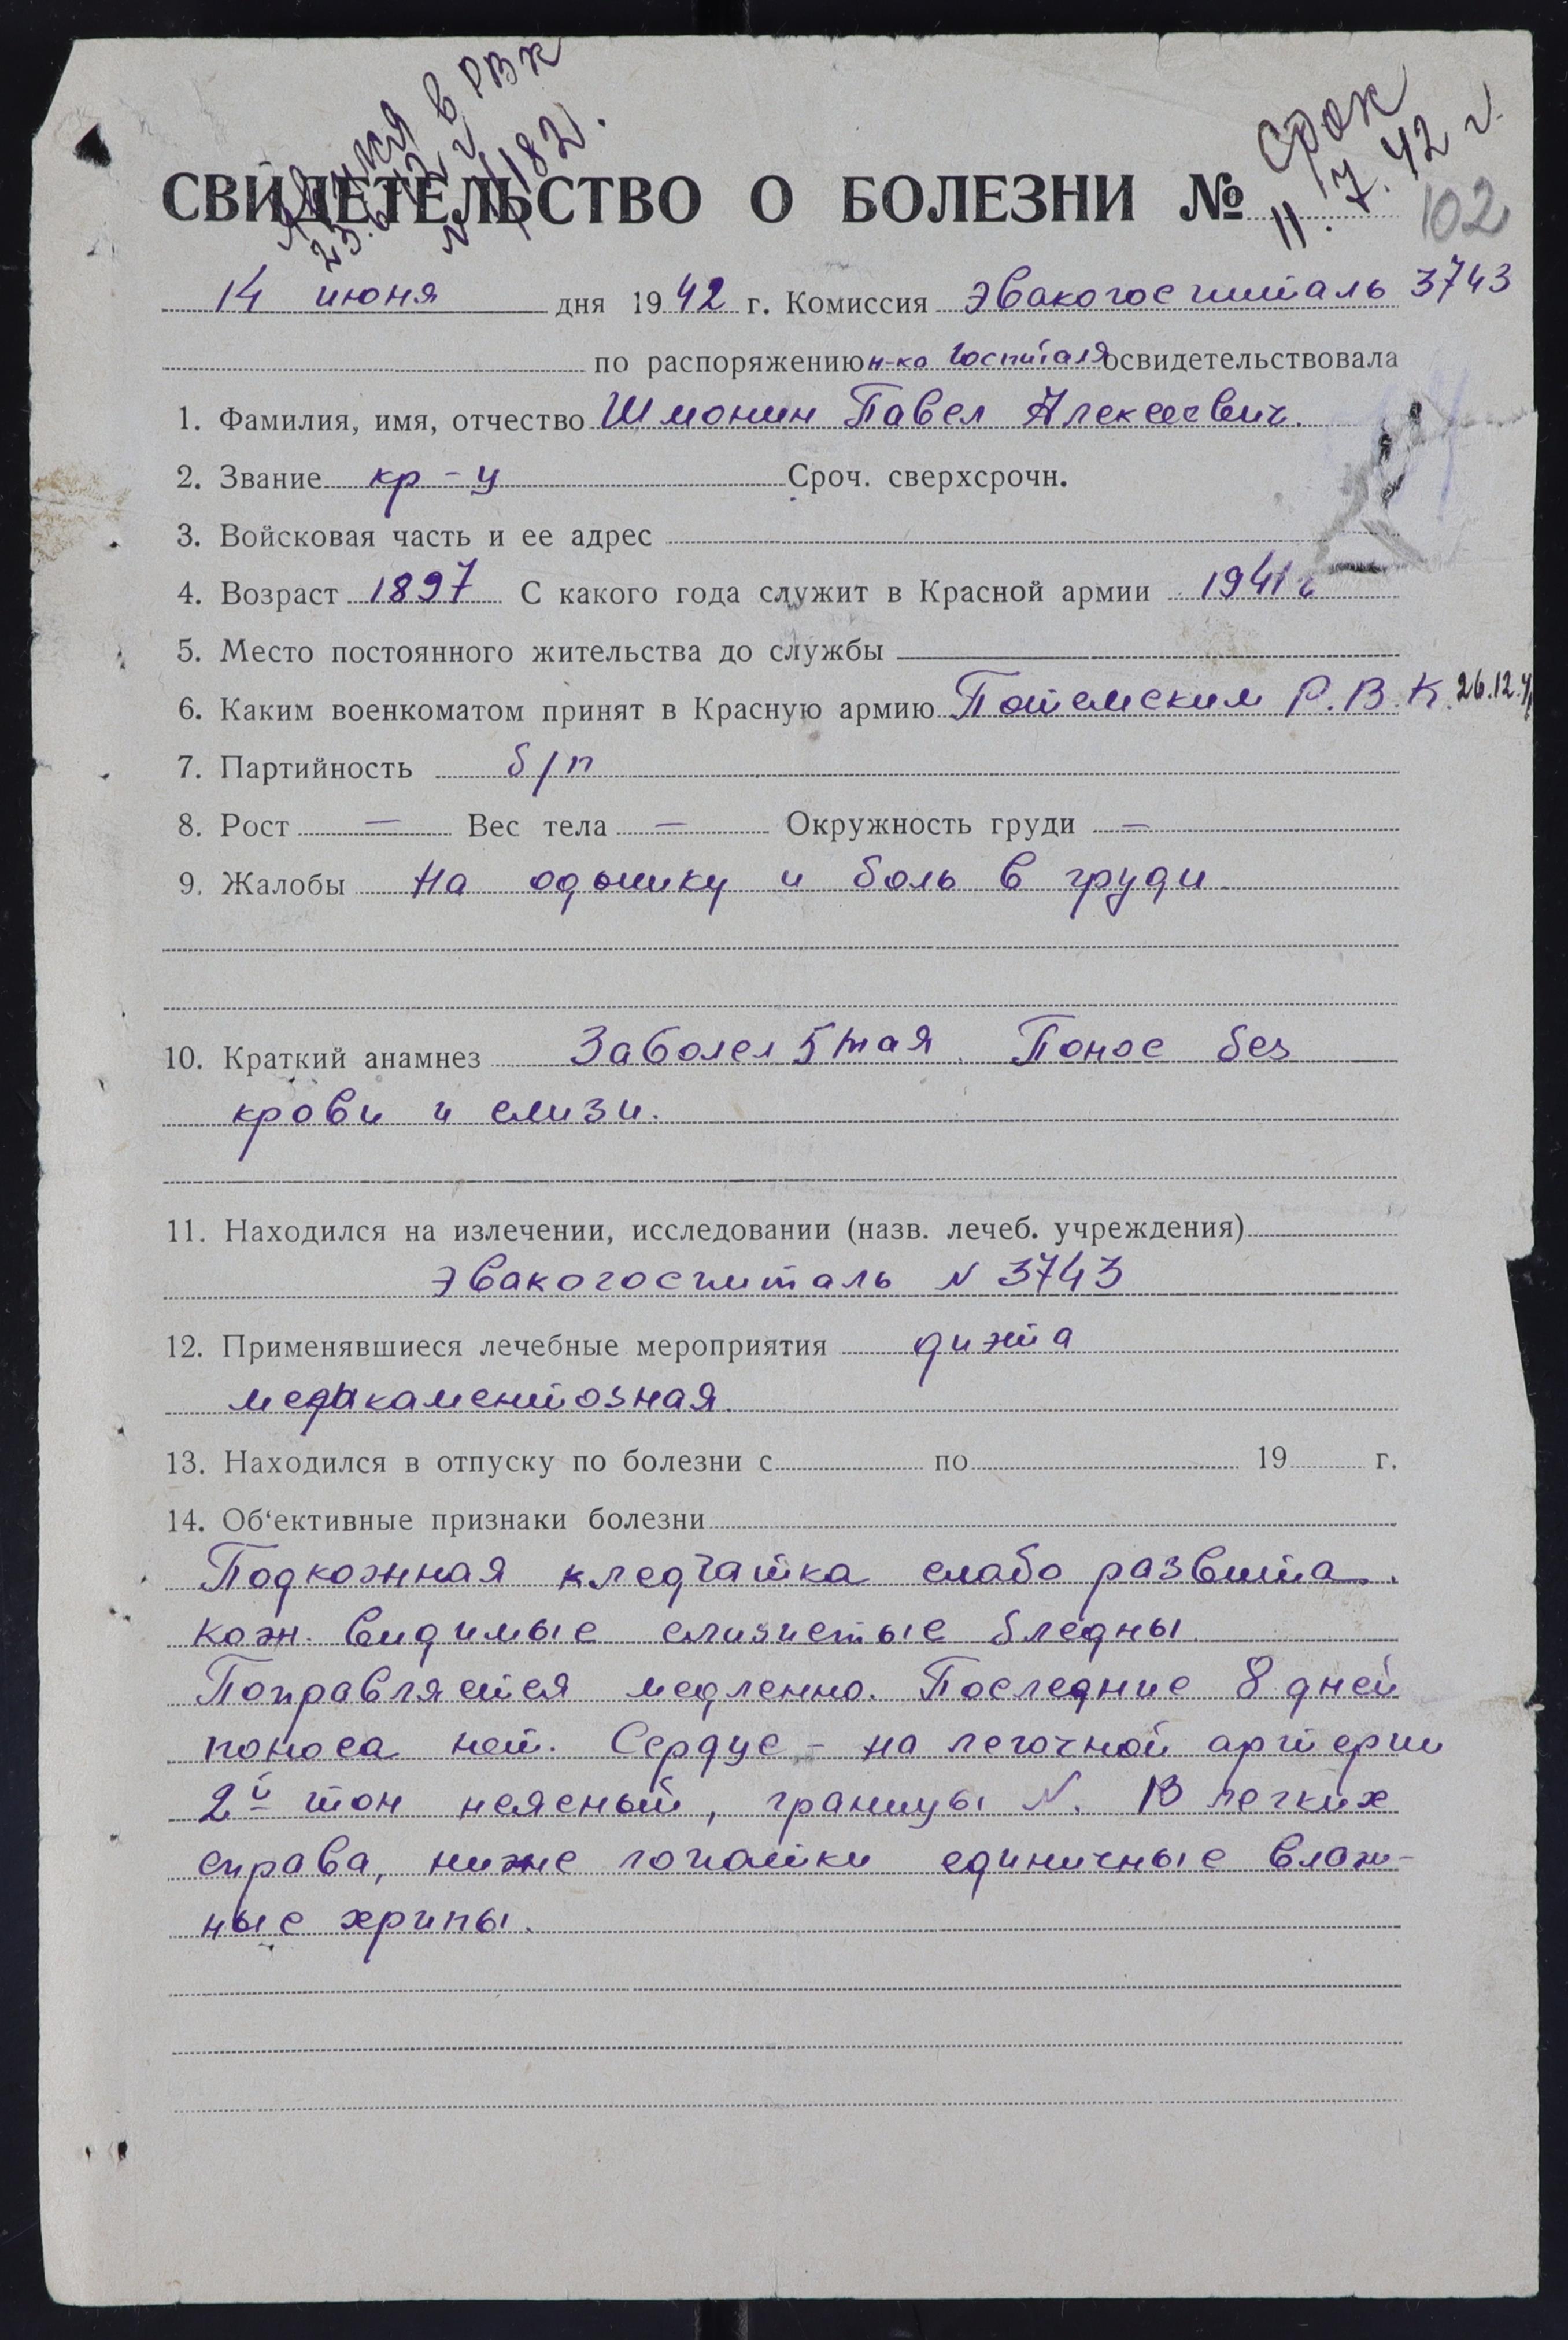 Явился в РВК
23.6.42 г.
N 1182.
Срок
11.7.42 г.
СВИДЕТЕЛЬСТВО О БОЛЕЗНИ №
102
14 июня дня 1942 г. Комиссия эвакогоспиталь 3743
по распоряжению н-ка госпиталя освидетельствовала
1. Фамилия, имя, отчество Шмонин Павел Алексеевич.
2. Звание кр-ц Сроч. сверхсрочн.
3. Войсковая часть и ее адрес
4. Возраст 1897 С какого года служит в Красной армии 1941 г
5. Место постоянного жительства до службы
6. Каким военкоматом принят в Красную армию Потемским Р.В.К. 26.12.41
7. Партийность б/п
8. Рост — Вес тела — Окружность груди —
9. Жалобы На одышку и боль в груди
10. Краткий анамнез Заболел 5 мая. Понос без
крови и слизи.
11. Находился на излечении, исследовании (назв. лечеб. учреждения)
эвакогоспиталь N 3743
12. Применявшиеся лечебные мероприятия диэта
медикаментозная.
13. Находился в отпуску по болезни с по 19 г.
14. Об‘ективные признаки болезни
Подкожная кледчатка слабо развита.
кож. видимые слизистые бледны.
Поправляется медленно. Последние 8 дней
поноса нет. Сердце - на легочной артерии
2й тон неясный, границы N. В легких
справа, ниже лопатки единичные влаж-
ные хрипы.